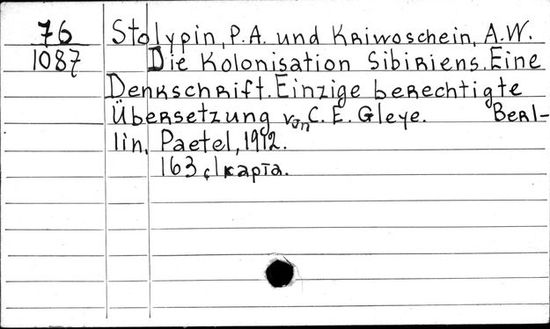 76
1087
Stolypin, P.A. und Kriwoschein, A.W.
Die Kolonisation Sibiriens. Eine
Denkschrift. Einzige berechtigte
Übersetzung von C. E. Gleye. Berl-
lin, Paetel, 1912.
163 с, 1 карта.